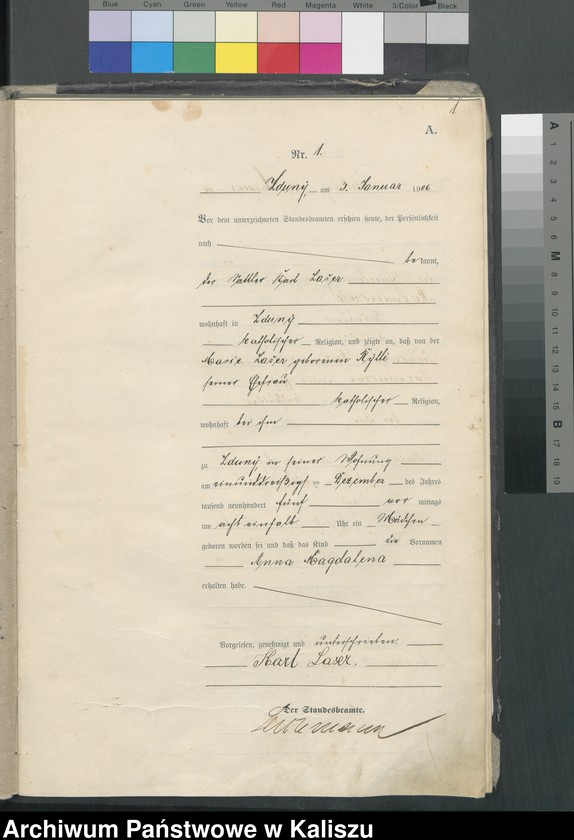 Blue Cyan Green Yellow Red Magenta White 3/Color Black
1
A.
Nr. 1.
Zduny, am 3. Januar 1906
Vor dem unterzeichneten Standesbeamten erschien heute, der Persönlichkeit
nach
bekannt,
der Sattler Karl Laser
wohnhaft in Zduny
katholischer Religion, und zeigte an, daß von der
Marie Laser geborenen
seiner Ehefrau
katholischer Religion,
wohnhaft bei ihm
zu Zduny in seiner Wohnung
am einunddreißigsten Dezember des Jahres
tausend neunhundert fünf vor mittags
um acht einhalb Uhr ein Mädchen
geboren worden sei und daß das Kind die Vornamen
Anna Magdalena
erhalten habe.
Vorgelesen, genehmigt und unterschrieben.
Karl Laser.
Der Standesbeamte.
A 1 2 3 4 5 6 M 8 9 10 11 12 13 14 15 B 17 18 19
Archiwum Państwowe w Kaliszu